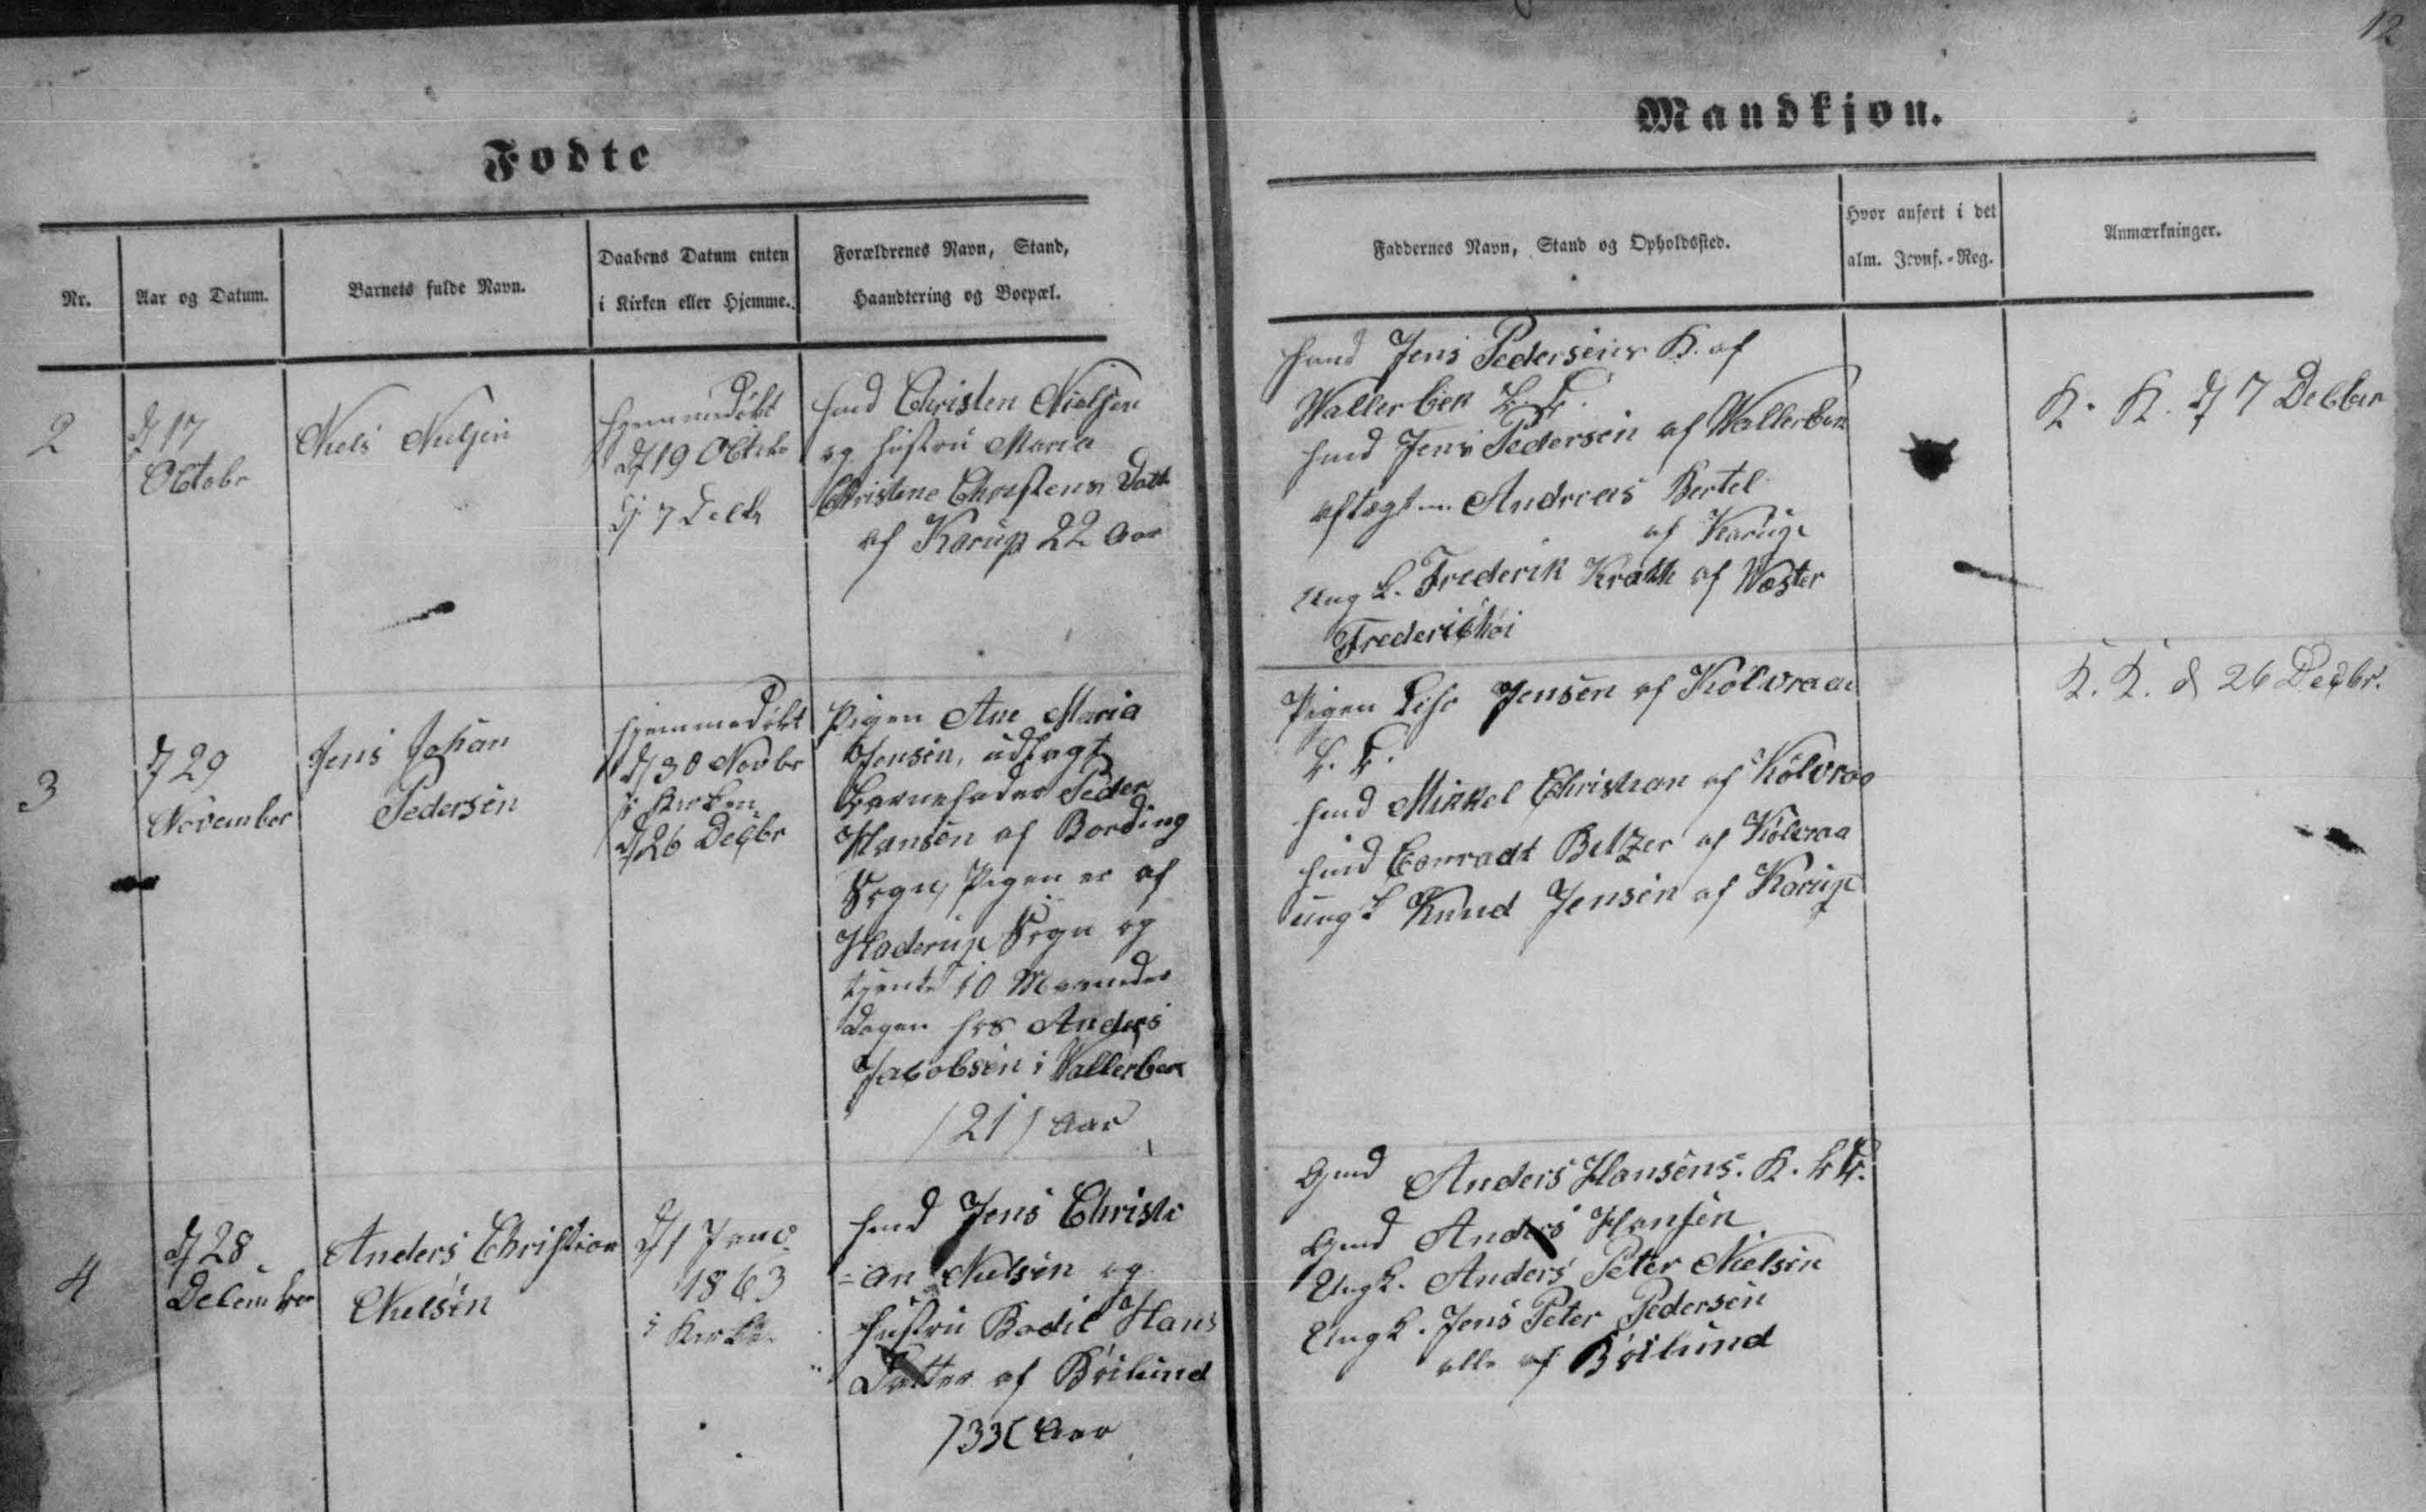 12
Fødte
Mandkjøn.
Nr.
Aar og Datum.
Barnets fulde Navn.
Daabens Datum enten
i Kirken eller Hjemme.
Forældrenes Navn, Stand,
Haandtering og Boepæl.
Faddernes Navn, Stand og Opholdssted.
Hvor anført i det
alm. Jevnf.-Reg.
Anmærkninger.
2
d 17
Octobr
Niels Nielsen
Hjemmedøbt
d 19 Octobr
d 7 Decb
Hmd Christen Nielsen
og Hustru Maria
Christine Christens Datt
af Karup 22 Aar
Hmd Jens Pedersens K. af
Wallerbek b. B.
Hmd Jens Pedersen af Wallerbek
Aftægtm. Andreas Bertel
af Karup
Ung k. Frederik Kratt af Wester
Frederikhøi
K. K. d 7 Decbr
3
d 29
November
Jens Johan
Pedersen
Hjemmedøbt
d 30 Novbr
i Kirken
d 26 Decbr
Pigen Ane Maria
Jensen, udlagt
Barnefader Peder
Hansen af Bording
Sogn, Pigen er af
Haderup Sogn og
tjente 10 Maaneder
Dagen hos Anders
Jacobsen i Wallerbek
/21/ Aar
Pigen Lise Jensen af Kølvraa
b. B.
Hmd Mikkel Christian af Kølvraa
Hmd Conradt Beltzer af Kølvraa
ung k Knud Jensen af Karup
K. K. d 26 Decbr.
4
d 28
December
Anders Christian
Nielsen
d 1 Janv
1863
i Kirke
Hmd Jens Christi
=an Nielsen og
Hustru Bodil Hans
Datter af Bøilund
/33/ Aar
Gmd Anders Hansens. K. b B.
Gmd Anders Hansen
Ungk. Anders Peter Nielsen
Ungk. Jens Peter Pedersen
alle af Bøilund